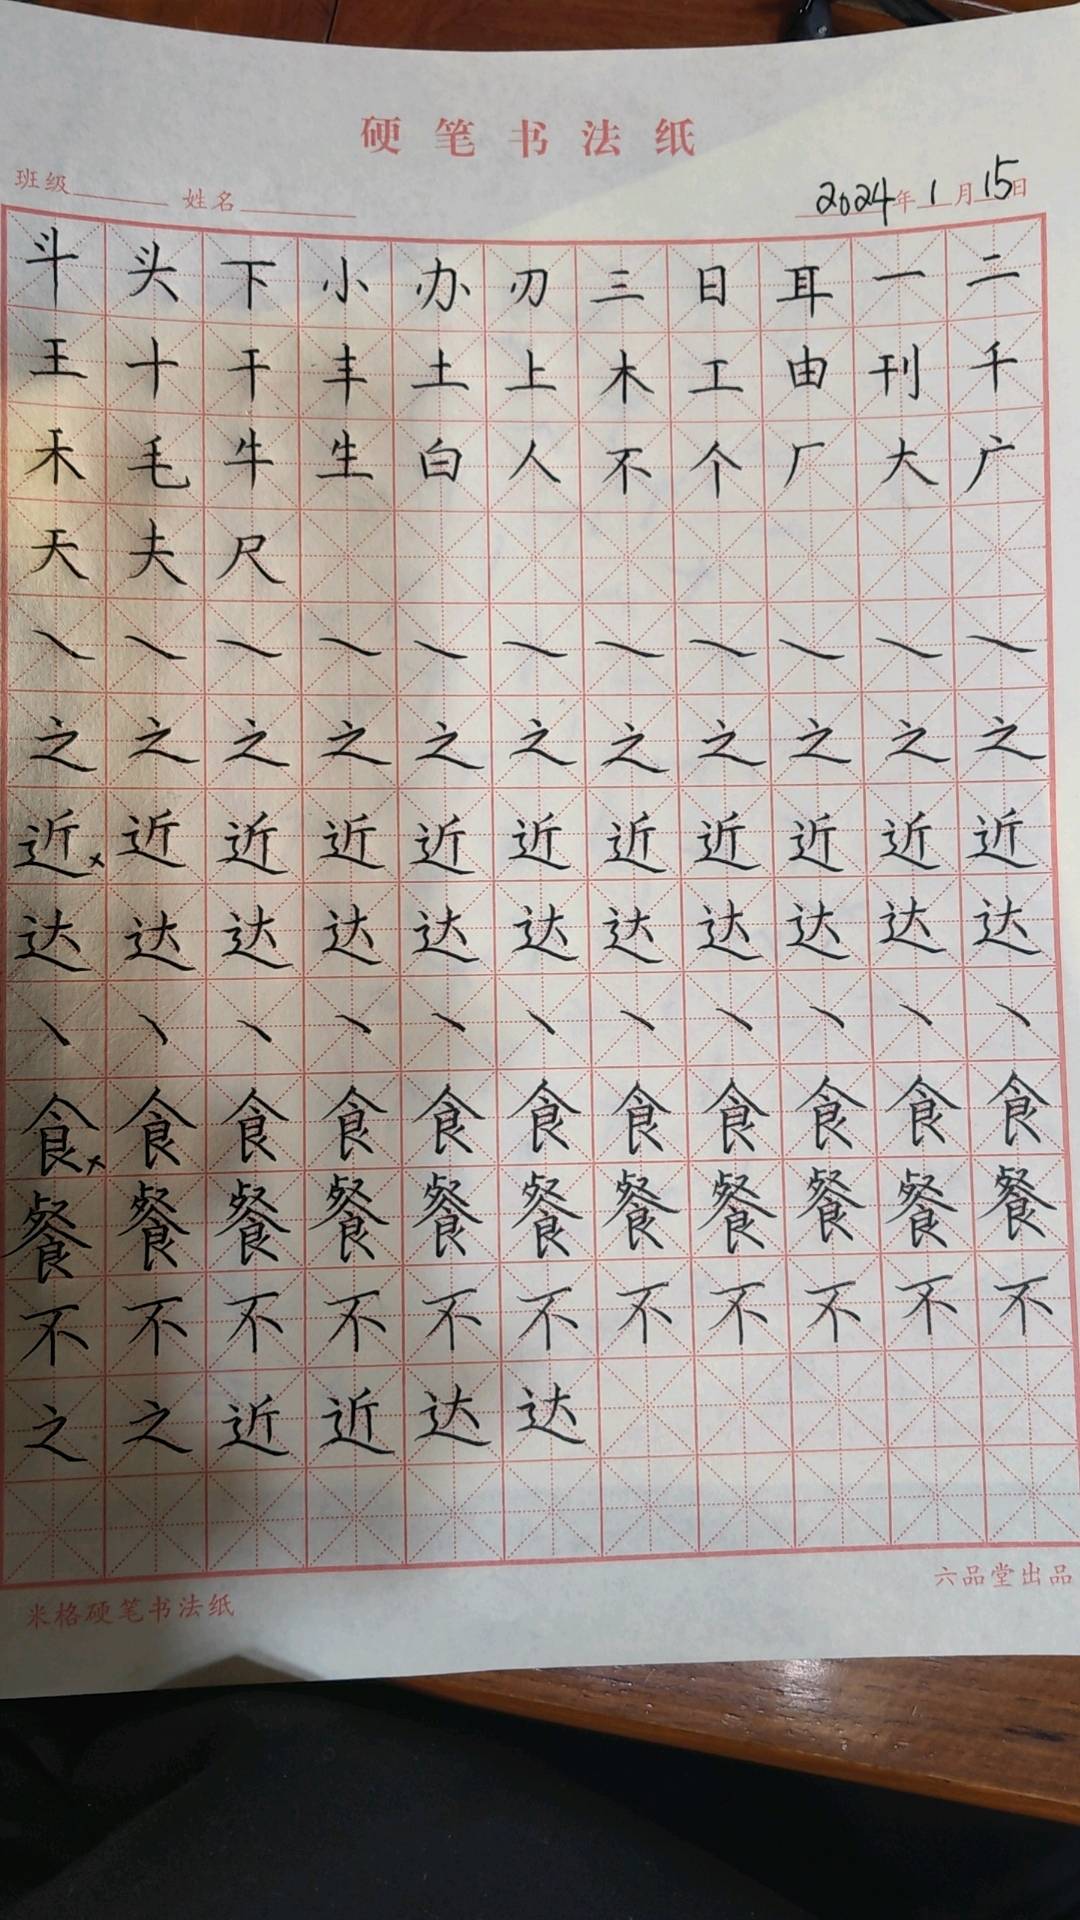 硬笔书法纸
班级 姓名 2024年1月15日
斗头下小办刃三日耳一二
王十干丰土上木工由刊千
禾毛牛生白人不个厂大广
天夫尺
㇏㇏㇏㇏㇏㇏㇏㇏㇏㇏㇏
之之之之之之之之之之之
近×近近近近近近近近近近
达达达达达达达达达达达
丶丶丶丶丶丶丶丶丶丶丶
食×食食食食食食食食食食
餐餐餐餐餐餐餐餐餐餐餐
不不不不不不不不不不不
之之近近达达
六品堂出品
米格硬笔书法纸